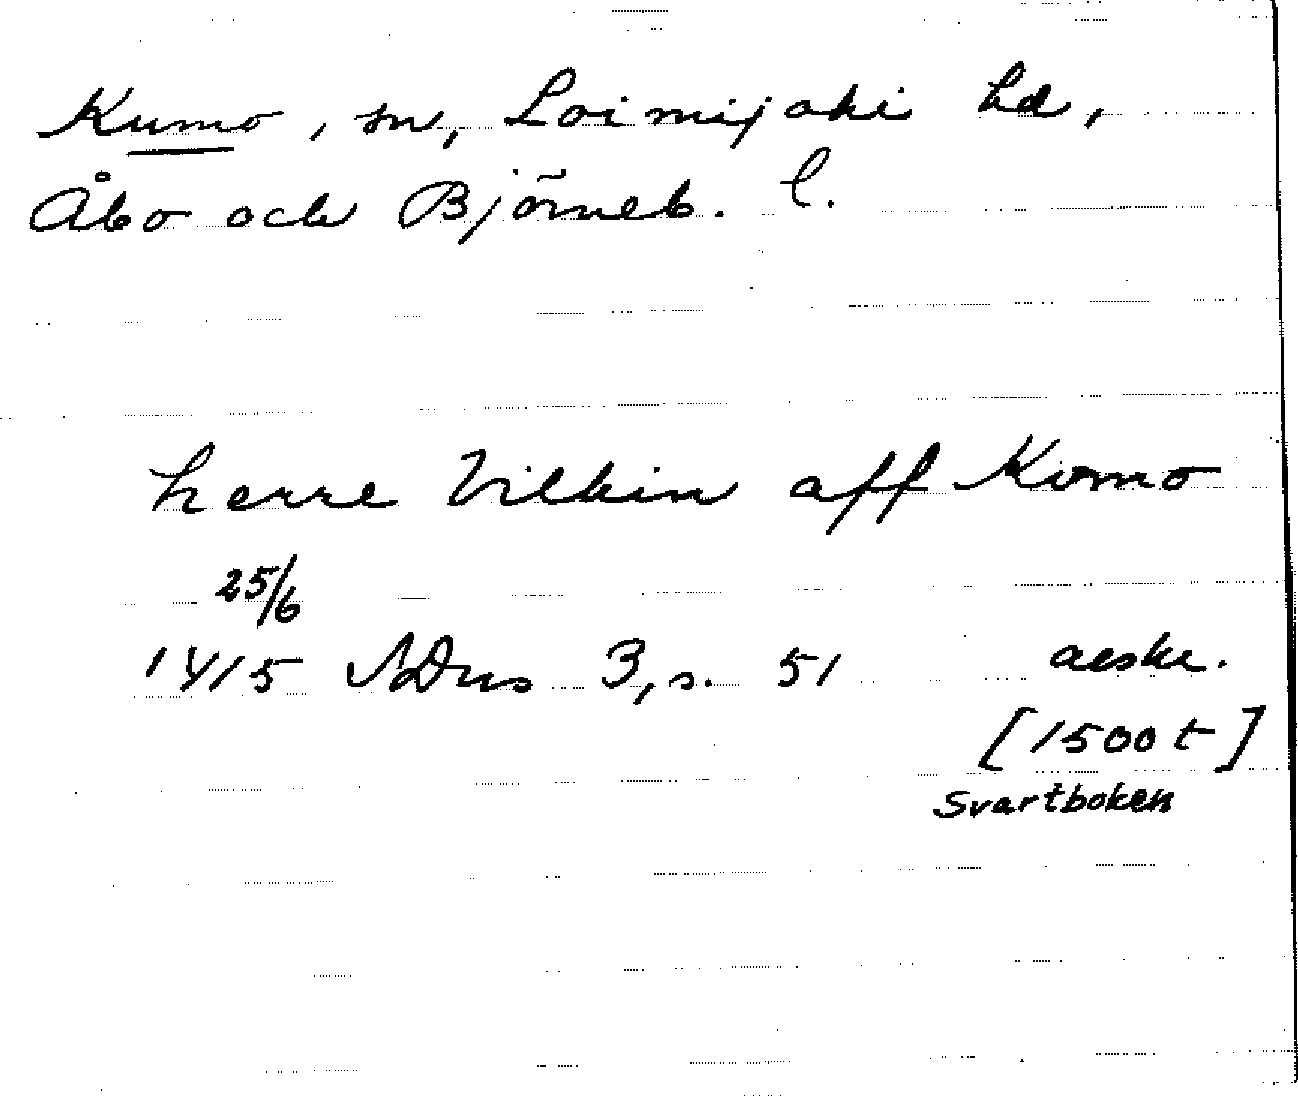 Kumo, sn, Loimijoki hd,
Åbo och Björneb. l.
herre Vilkin aff Komo
25/6
1415 SDns 3, s. 51 avskr.
[1500 t]
Svartboken